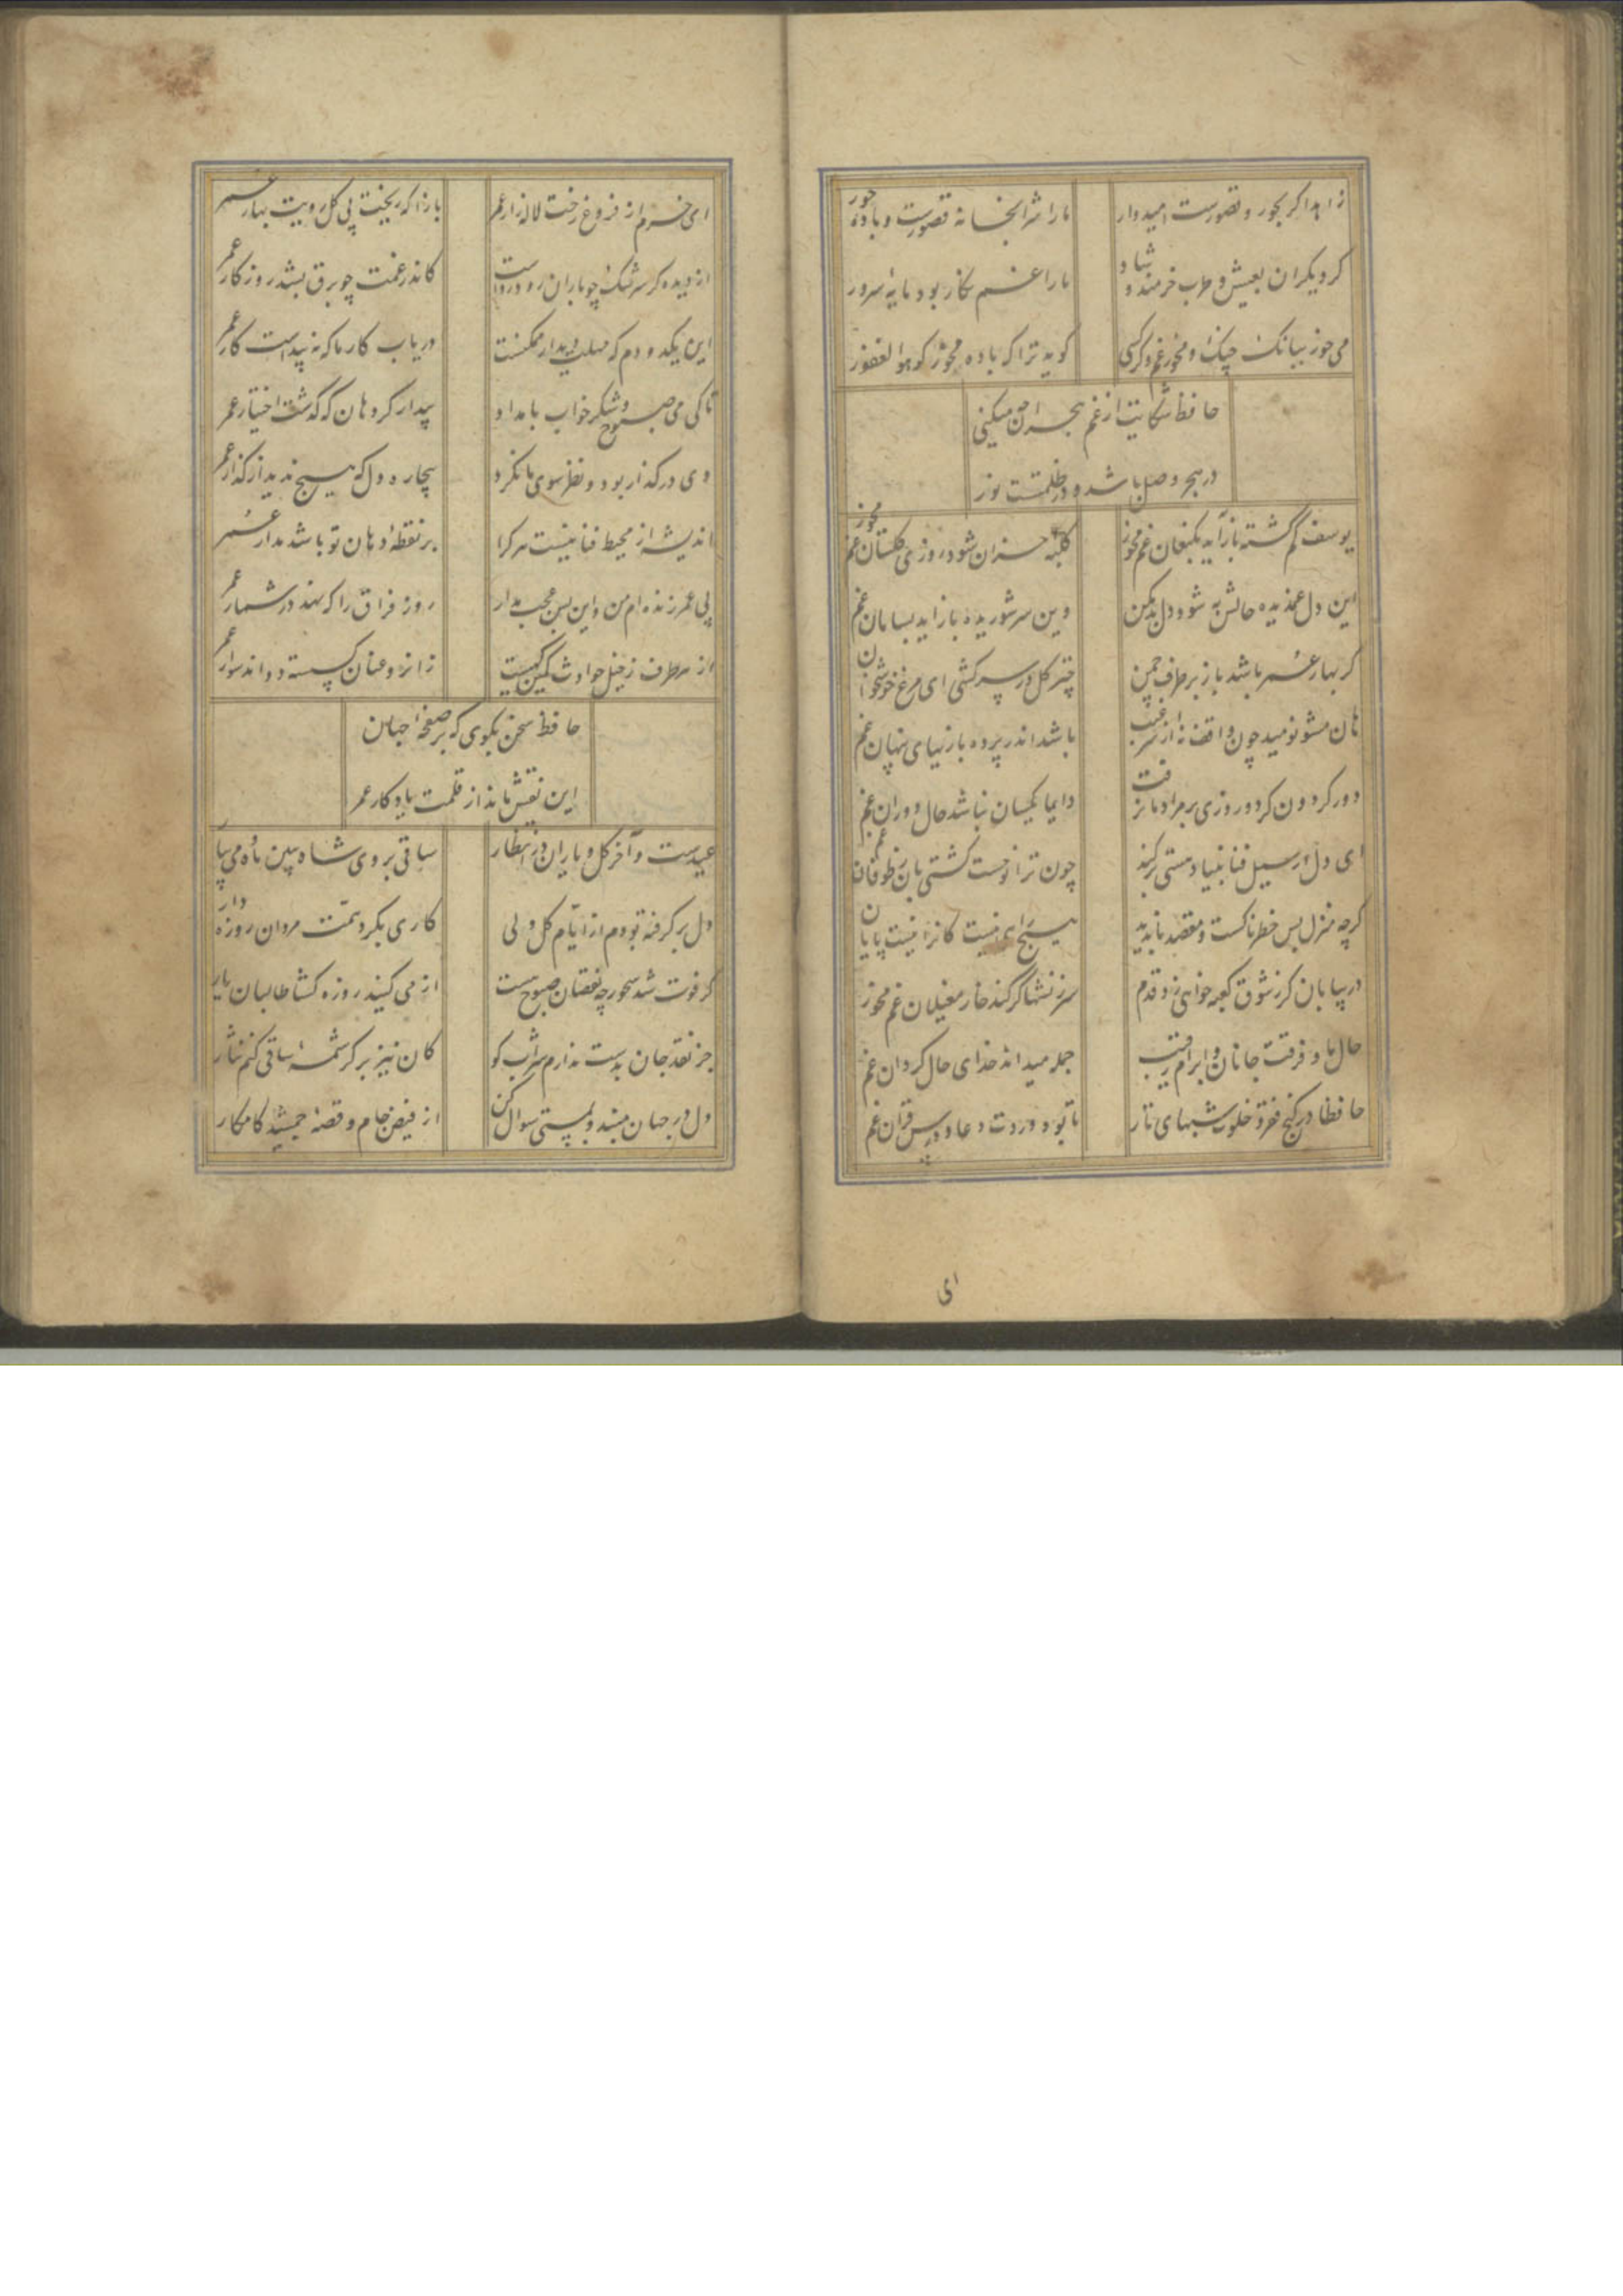 زاهد اگر بحور و قصورست امیدوار
ما را شرابخانه قصورست و باده حور
گر دیگران بعیش و طرب خرمند و شاد
ما را غم نگار بود مایه سرور
می خور ببانک چنک و مخور غم و گر کسی
گوید ترا که باده مخور گو هو الغفور
حافظ شکایت از غم هجران چه میکنی
در هجر وصل باشد و در ظلمتست نور
یوسف گم گشته باز آید بکنعان غم مخور
کلبه احزان شود روزی گلستان غم مخور
این دل غمدیده حالش به شود دل بد مکن
وین سر شوریده باز آید بسامان غم
گر بهار عمر باشد باز بر طرف چمن
چتر گل در سر کشی ای مرغ خوشخوان
هان مشو نومید چون واقف نه از سر غیب
باشد اندر پرده بازیهای پنهان غم
دور گردون گر دو روزی بر مراد ما نرفت
دایما یکسان نباشد حال دوران غم
ای دل ار سیل فنا بنیاد هستی بر کند
چون ترا نوحست کشتی بان ز طوفان غم
گرچه منزل بس خطرناکست و مقصد ناپدید
هیچ راهی نیست کانرا نیست پایان
در بیابان گر ز شوق کعبه خواهی زد قدم
سرزنشها گر کند خار مغیلان غم مخور
حال ما و فرقت جانان و ابرام رقیب
جمله میداند خدای حال گردان غم
حافظا در کنج فقر و خلوت شبهای تار
تا بود وردت دعا و درس قرآن غم
ای
ای خرم از فروغ رخت لاله زار عمر
باز آ که ریخت بی گل رویت بهار عمر
از دیده گر سرشک چو باران رود رواست
کاندر غمت چو برق بشد روزگار عمر
این یکدو دم که مهلت دیدار ممکنست
دریاب کار ما که نه پیداست کار عمر
تا کی می صبوح و شکر خواب بامداد
بیدار گرد هان که گذشت اختیار عمر
دی در گذار بود و نظر سوی ما نکرد
بیچاره دل که هیچ ندید از گذار عمر
اندیشه از محیط فنا نیست هر کرا
بر نقطه دهان تو باشد مدار عمر
بی عمر زنده ام من و این بس عجب مدار
روز فراق را که نهد در شمار عمر
از هر طرف ز خیل حوادث کمین گهیست
زانرو عنان گسسته دواند سوار عمر
حافظ سخن بگوی که بر صفحه جهان
این نقش ماند از قلمت یادگار عمر
عیدست و آخر گل و یاران در انتظار
ساقی بروی شاه ببین ماه و می بیار
دل بر گرفته بودم از ایام گل ولی
کاری بکرد همت مردان روزه دار
گر فوت شد سحور چه نقصان صبوح هست
از می کنند روزه گشا طالبان یار
جز نقد جان بدست ندارم شراب کو
کان نیز بر کرشمه ساقی کنم نثار
دل در جهان مبند و بمستی سوال کن
از فیض جام و قصه جمشید کامکار